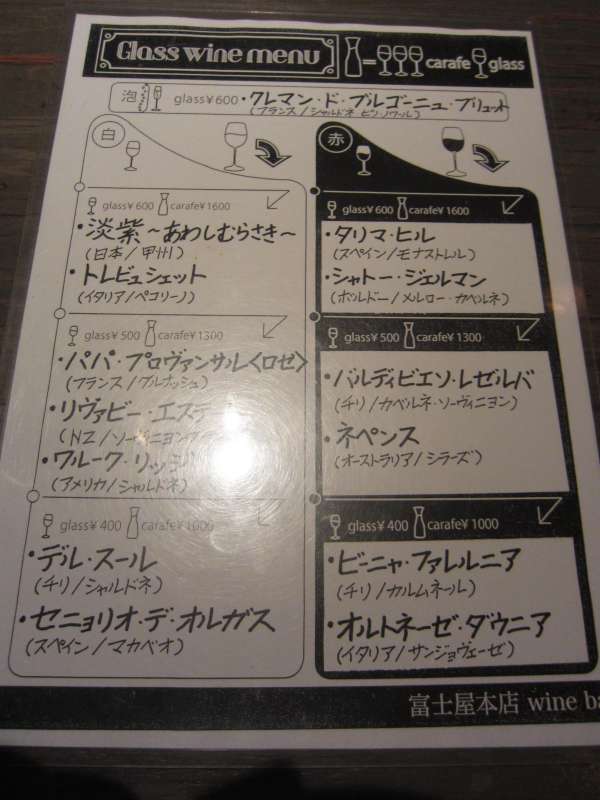 Glass wine menu
carafe glass
泡 glass¥600・クレマン・ド・ブルゴーニュ・ブリュット
(フランス/シャルドネ ピノ・ノワール)
白
glass¥600 carafe¥1600
・淡紫〜あわしむらさき〜
(日本/甲州)
・トレビュシェット
(イタリア/ペコリーノ)
glass¥500 carafe¥1300
・パパ・プロヴァンサル〈ロゼ〉
(フランス/グルナッシュ)
・リヴァビー・エステ
(NZ/ソーヴィニヨン
・ワルーク・リッジ
(アメリカ/シャルドネ)
glass¥400 carafe¥1000
・デル・スール
(チリ/シャルドネ)
・セニョリオ・デ・オルガス
(スペイン/マカベオ)
赤
glass¥600 carafe¥1600
・タリマ・ヒル
(スペイン/モナストレル)
・シャトー・ジェルマン
(ボルドー/メルロー・カベルネ)
glass¥500 carafe¥1300
・バルディビエソ・レゼルバ
(チリ/カベルネ・ソーヴィニヨン)
・ネペンス
(オーストラリア/シラーズ)
glass¥400 carafe¥1000
・ビーニャ・ファレルニア
(チリ/カルムネール)
・オルトネーゼ・ダウニア
(イタリア/サンジョヴェーゼ)
富士屋本店 wine ba